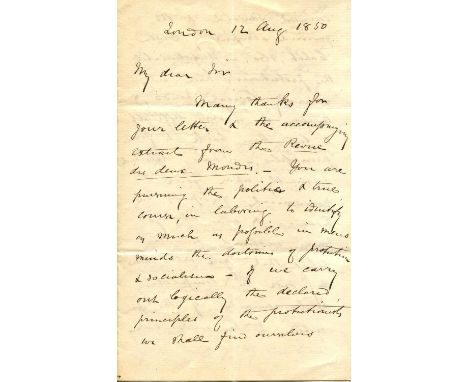 London 12 Aug 1850
My dear Sir
Many thanks for
your letter & the accompanying
extract from the Revue
des deux Mondes. — You are
pursuing the politic & true
course, in laboring to identify
as much as possible in mens
minds the doctrines of protection
& socialism — If we carry
out logically the declared
principles of the protectionists
we shall find ourselves